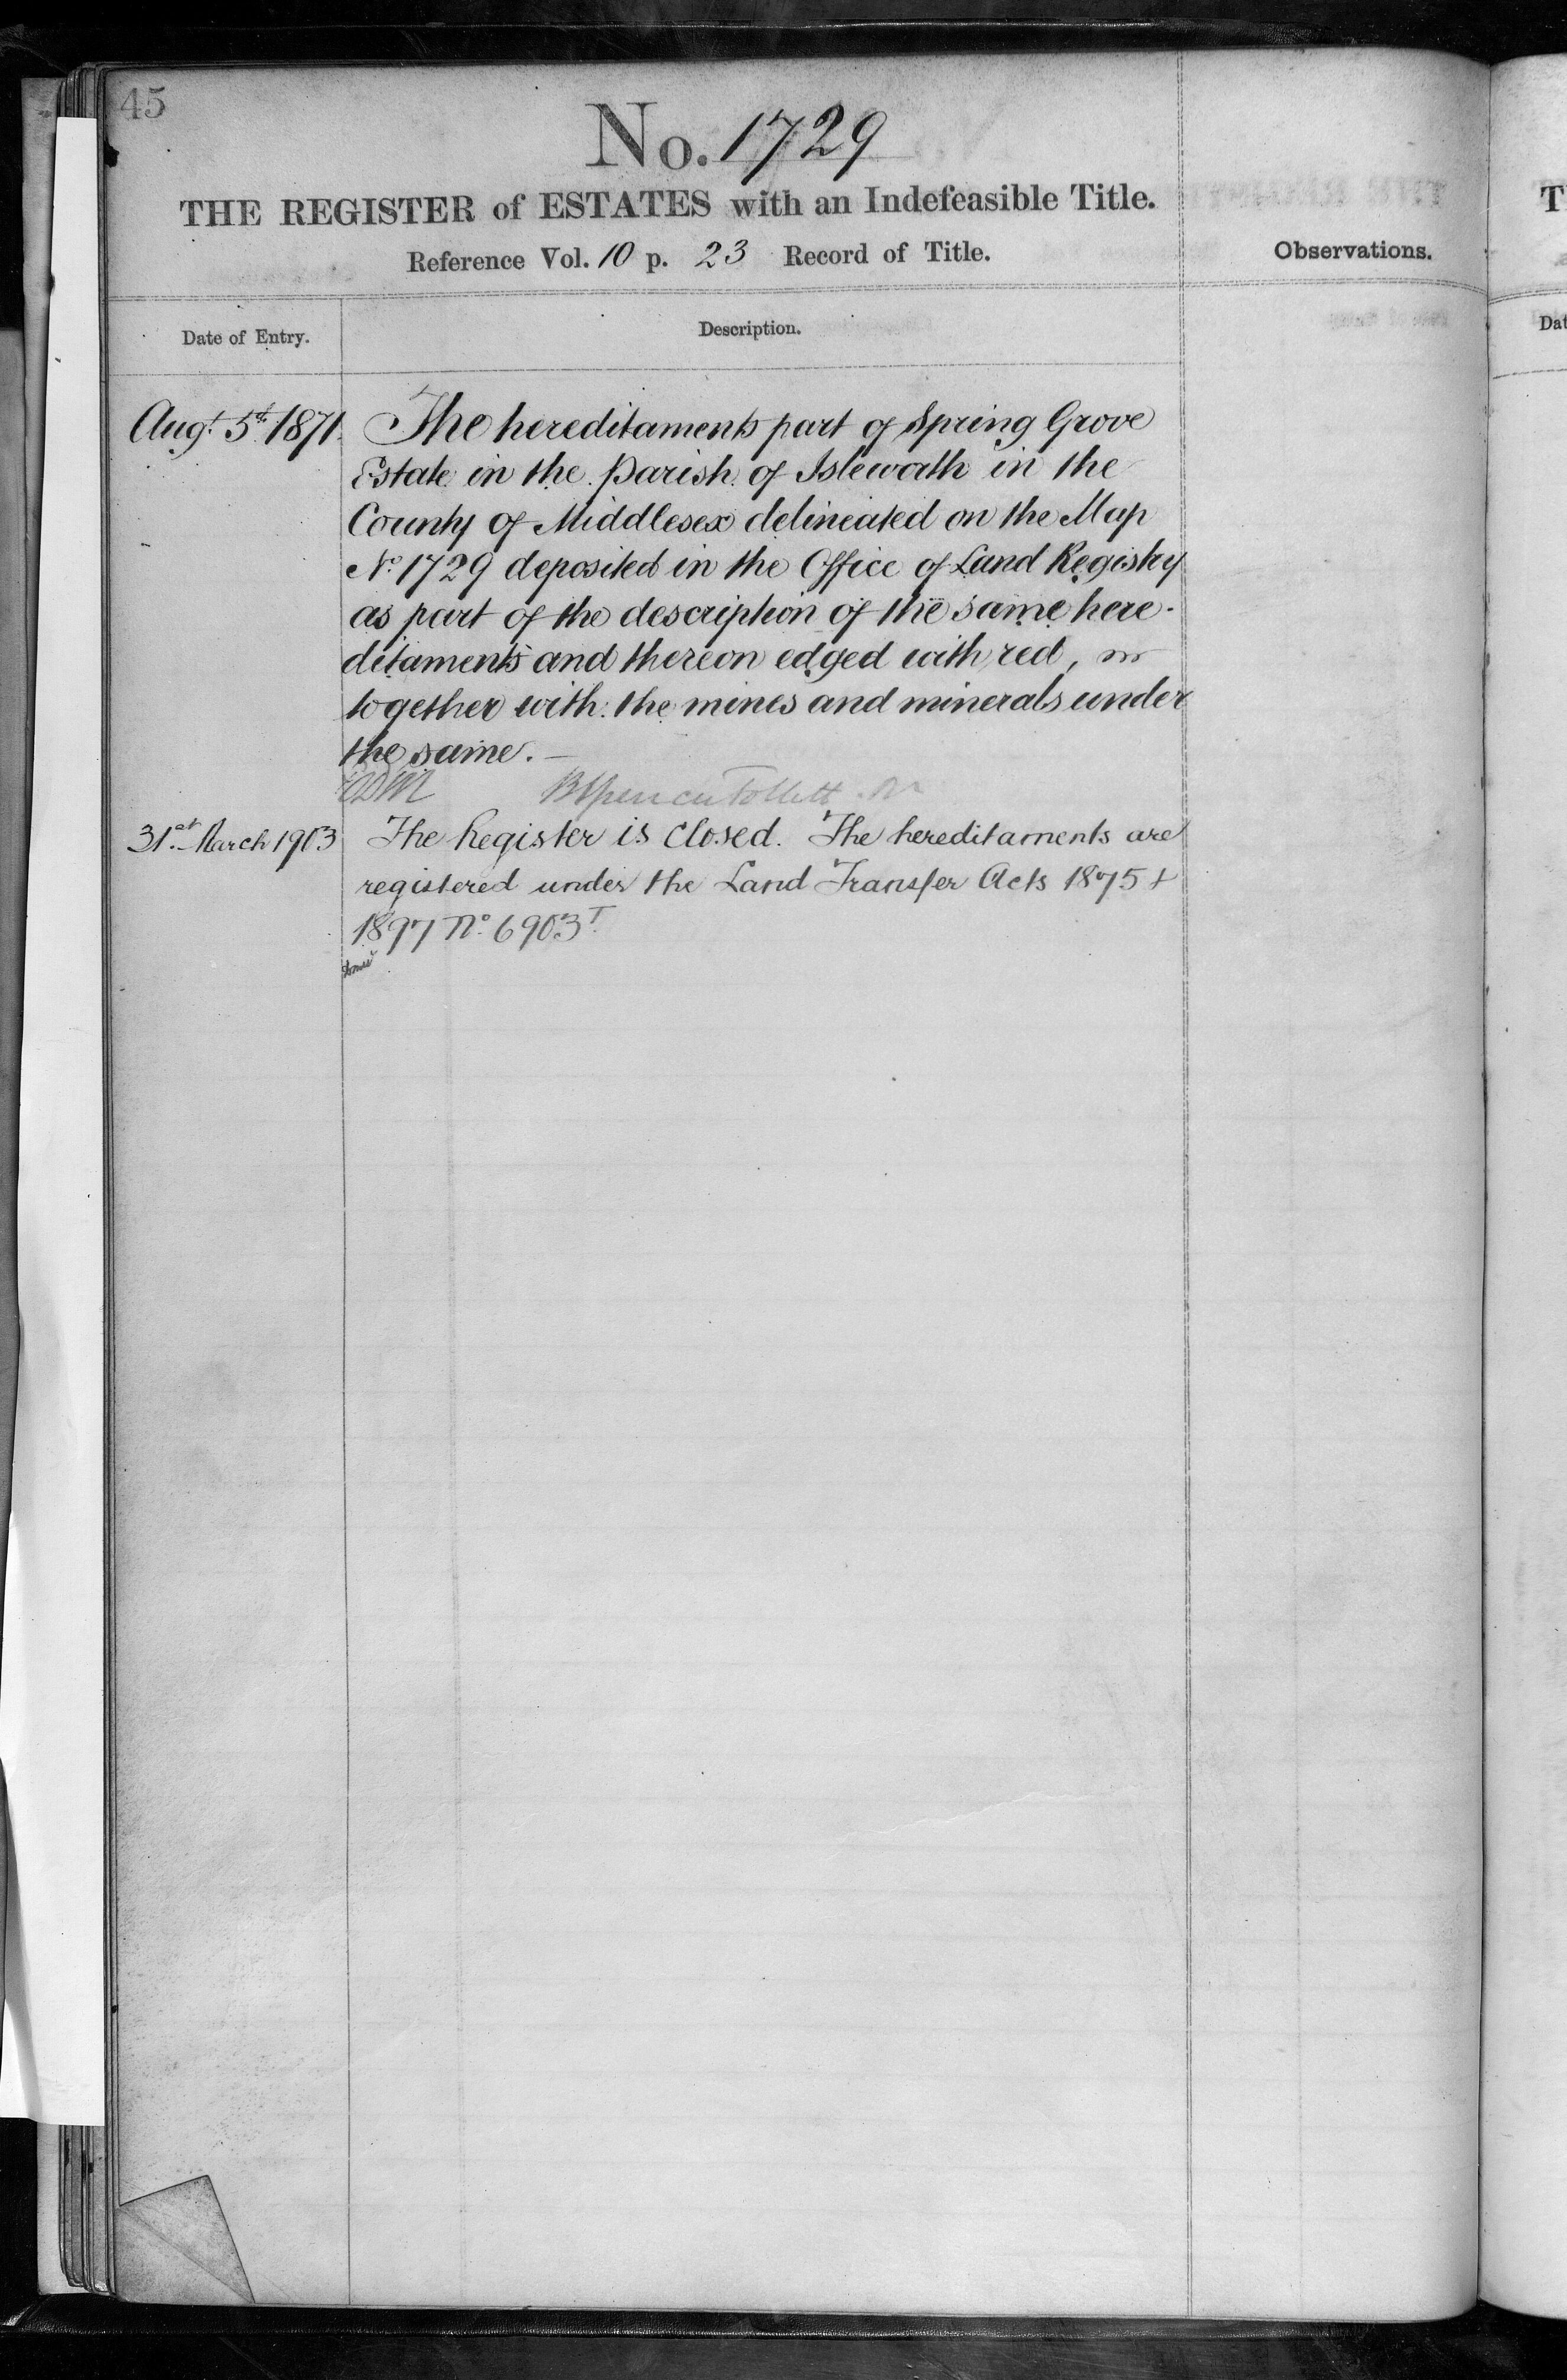 45
No. 1729
THE REGISTER of ESTATES with an Indefeasible Title.
Reference Vol. 10 p. 23 Record of Title.
Observations.
Date of Entry.
Description.
Augt. 5th 1871.
The hereditaments part of Spring Grove
Estate in the Parish of Isleworth in the
County of Middlesex delineated on the Map
No. 1729 deposited in the Office of Land Registry
as part of the description of the same here-
ditaments and thereon edged with red,
together with the mines and minerals under
the same.—
BSpencer Follett
31st. March 1903
The Register is Closed. The hereditaments are
registered under the Land Transfer Acts 1875 &
1897 No. 6903T.
T
Dat